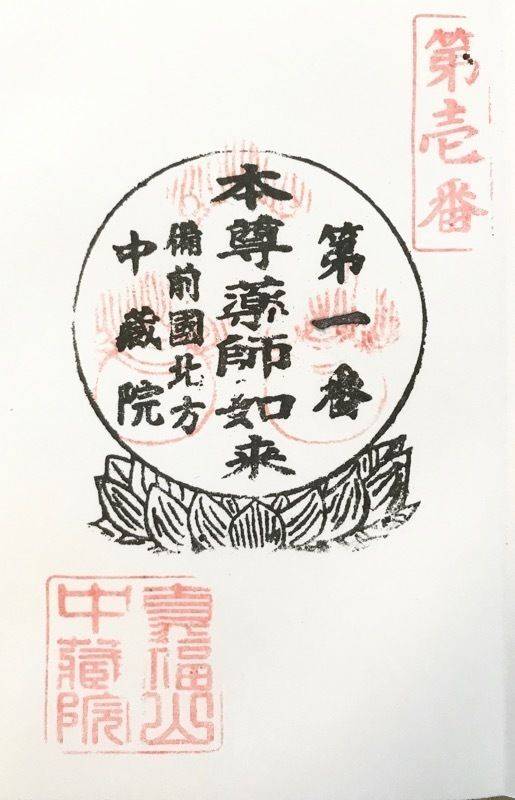 第壱番
第一番
本尊薬師如来
備前國北方
中蔵院
壽福山
中藏院